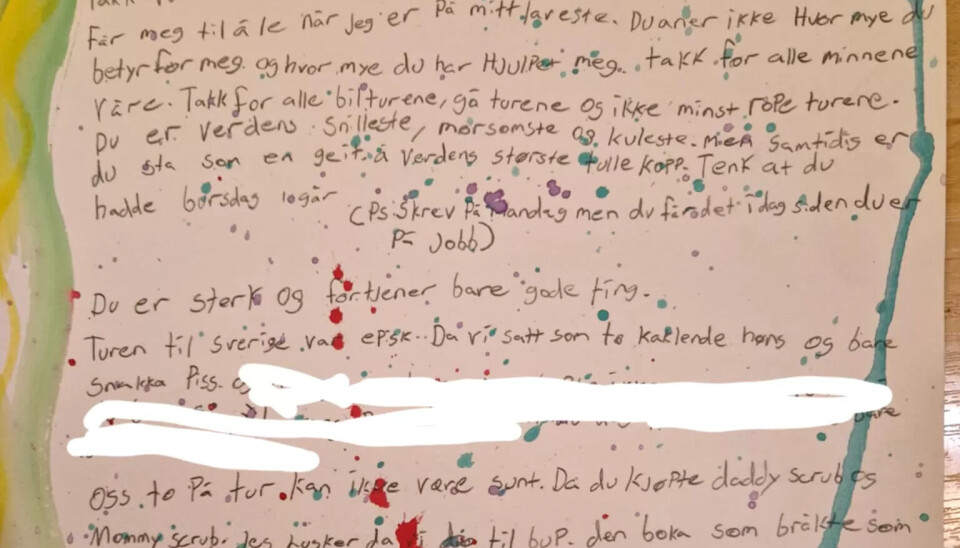 Takk
Får meg til å le når jeg er På mitt laveste. Du aner ikke Hvor mye du
betyr for meg. og hvor mye du har HJulPet meg. takk for alle minnene
våre. Takk for alle bilturene, gå turene og ikke minst rope turene.
Du er verdens snilleste, morsomste og kuleste. men samtidig er
du sta som en geit å verdens største tulle kopp. Tenk at du
hadde børsdag igår
(Ps: Skrev På Mandag men du får det idag siden du er
På Jobb)
Du er sterk og fortjener bare gode ting.
Turen til Sverige var episk. Da vi satt som to kaklende høns og bare
Snakka Piss.
bare
Oss to På tur kan ikke være sunt. Da du kjøpte daddy scrub og
Mommy scrub. Jeg husker da vi til buP. den boka som bråkte som